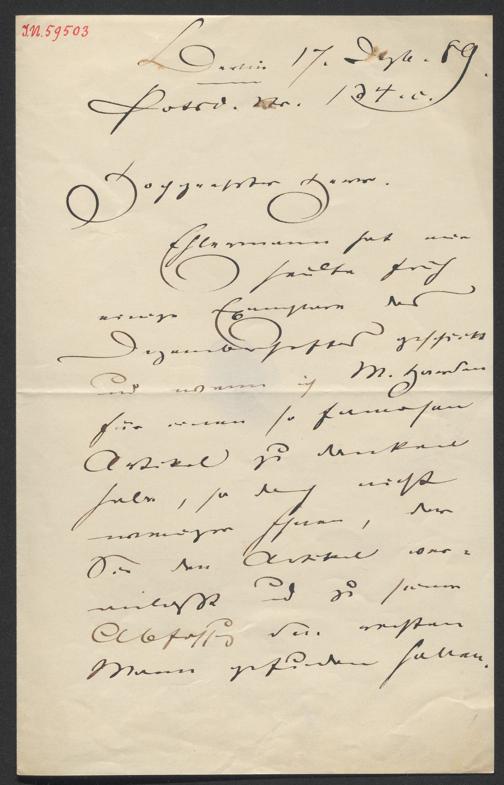 I.N. 59503
Berlin 17. Dezb. 89.
Potsd. Str. 134.c.
Hochgeehrter Herr.
Ehlermann hat mir
heute früh
einige Exemplare des
Dezemberheftes geschickt
und wenn ich M. Harden
für einen so famosen
Artikel zu danken
habe, so doch nicht
weniger Ihnen, der
Sie den Artikel ver=
anlaßt und zu seiner
Abfassung den rechten
Mann gefunden haben.